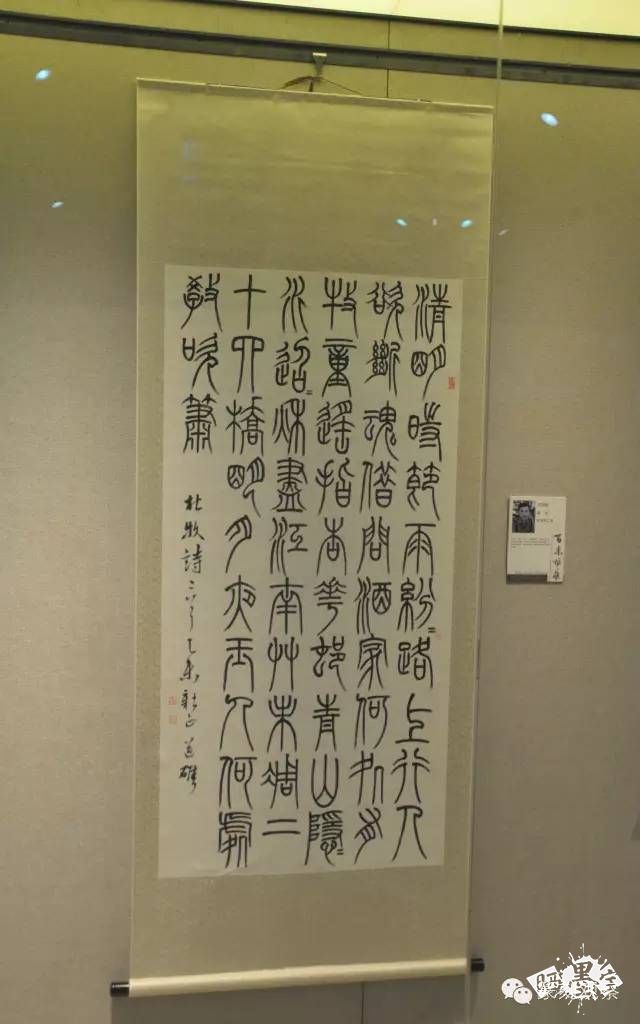 清明時節雨紛〻路上行人
欲斷魂借問酒家何処有
牧童遙指杏花邨青山隱〻
水迢〻秋盡江南艸未凋二
十四橋明月夜玉人何處
教吹簫
杜牧詩二首乙未新正